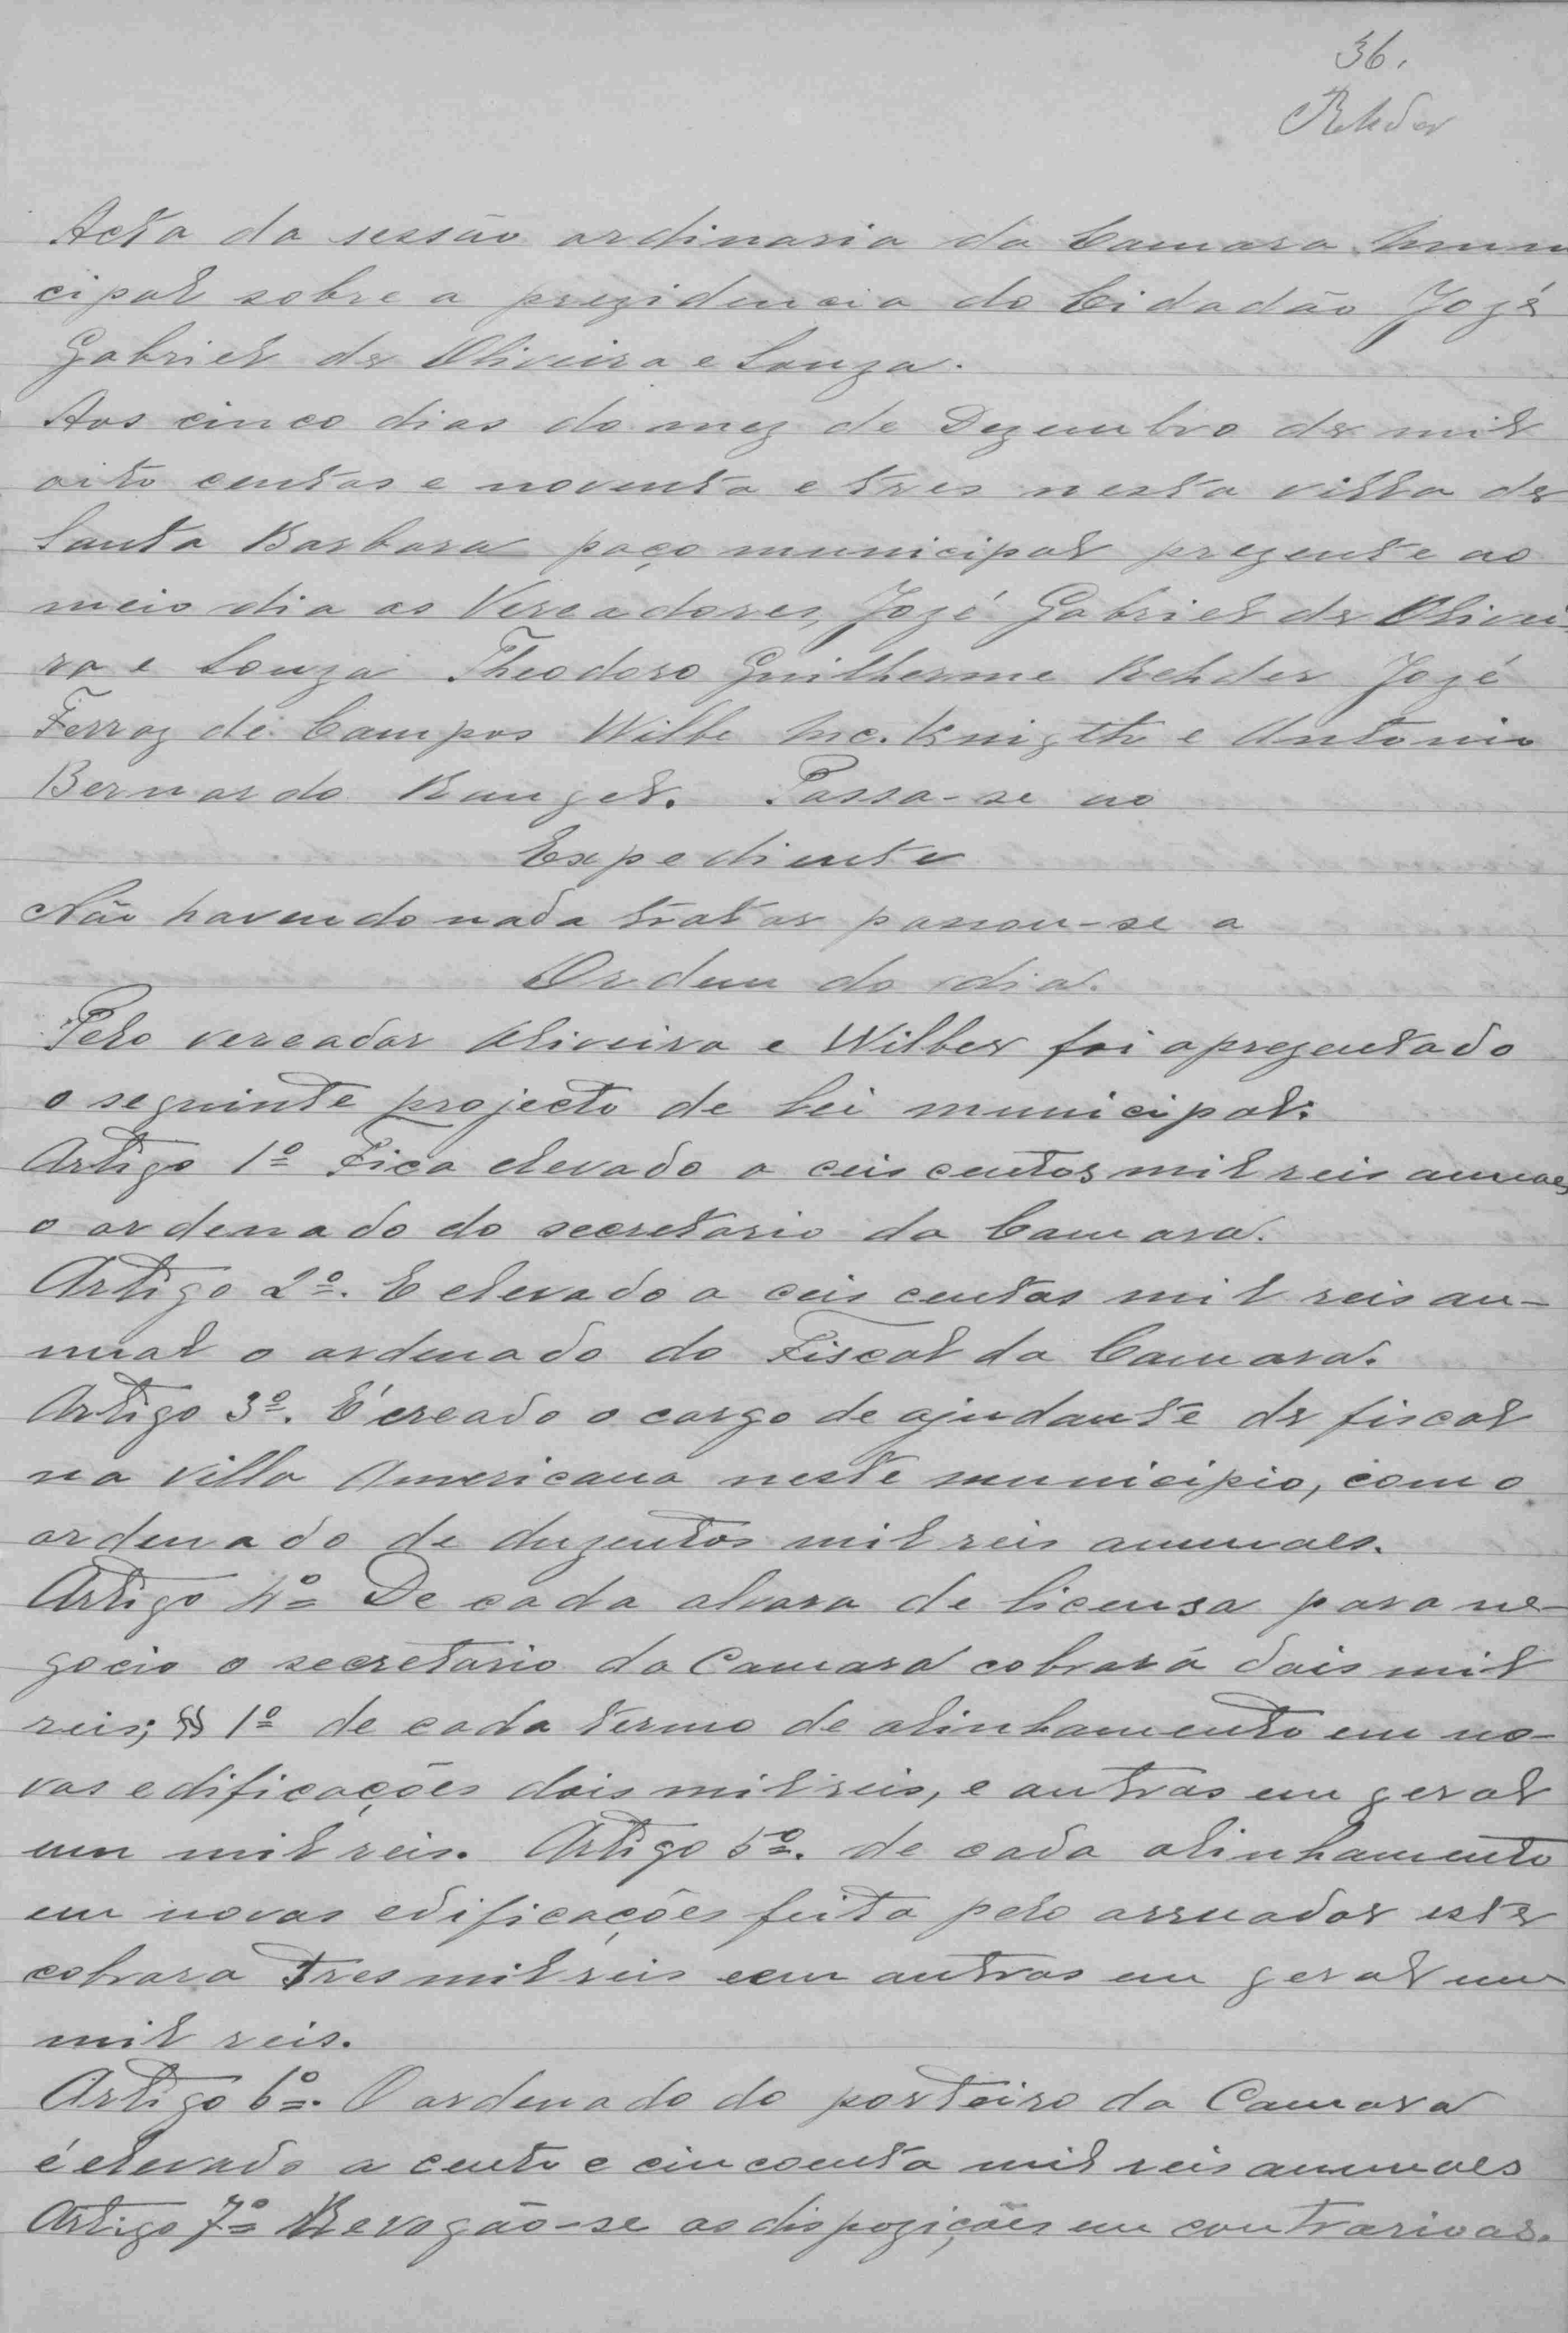 36.
Rehder
Acta da sessão ordinaria da Camara Muni
cipal sobre a prezidencia do Cidadão Jozé
Gabriel de Oliveira e Souza.
Aos cinco dias do mez de Dezembro de mil
oito centos e noventa e tres nesta villa de
Santa Barbara paço municipal prezente ao
meio dia os Vereadores, Jozé Gabriel de Olivei
ra e Souza Theodoro Guilherme Rehder Jozé
Ferraz de Campos Wilbe Mc. Knigth e Antonio
Bernardo Rangel. Passa-se ao
Expediente
Não havendo nada tratar passou-se a
Ordem do dia.
Pelo vereador Oliveira e Wilber foi aprezentado
o seguinte projecto de lei municipal:
Artigo 1º Fica elevado a ceis centos mil reis annuaes
o ordenado do secretario da Camara.
Artigo 2º. E elevado a ceis centos mil reis an-
nual o ordenado do Fiscal da Camara.
Artigo 3º. É creado o cargo de ajudante de fiscal
na Villa Americana neste municipio, com o
ordenado de duzentos mil reis annuaes.
Artigo 4º De cada alvara de licensa para ne-
gocio o secretario da Camara cobrará dois mil
reis; § 1º de cada termo de alinhamento em no-
vas edificações dois mil reis, e outras em geral
um mil reis. Artigo 5º. de cada alinhamento
em novas edificações feita pelo arruador este
cobrara tres mil reis e em outras em geral um
mil reis.
Artigo 6º. O ordenado do porteiro da Camara
é elevado a cento e cincoenta mil reis annuaes
Artigo 7º Revogão-se as dispozições em contrarioas.